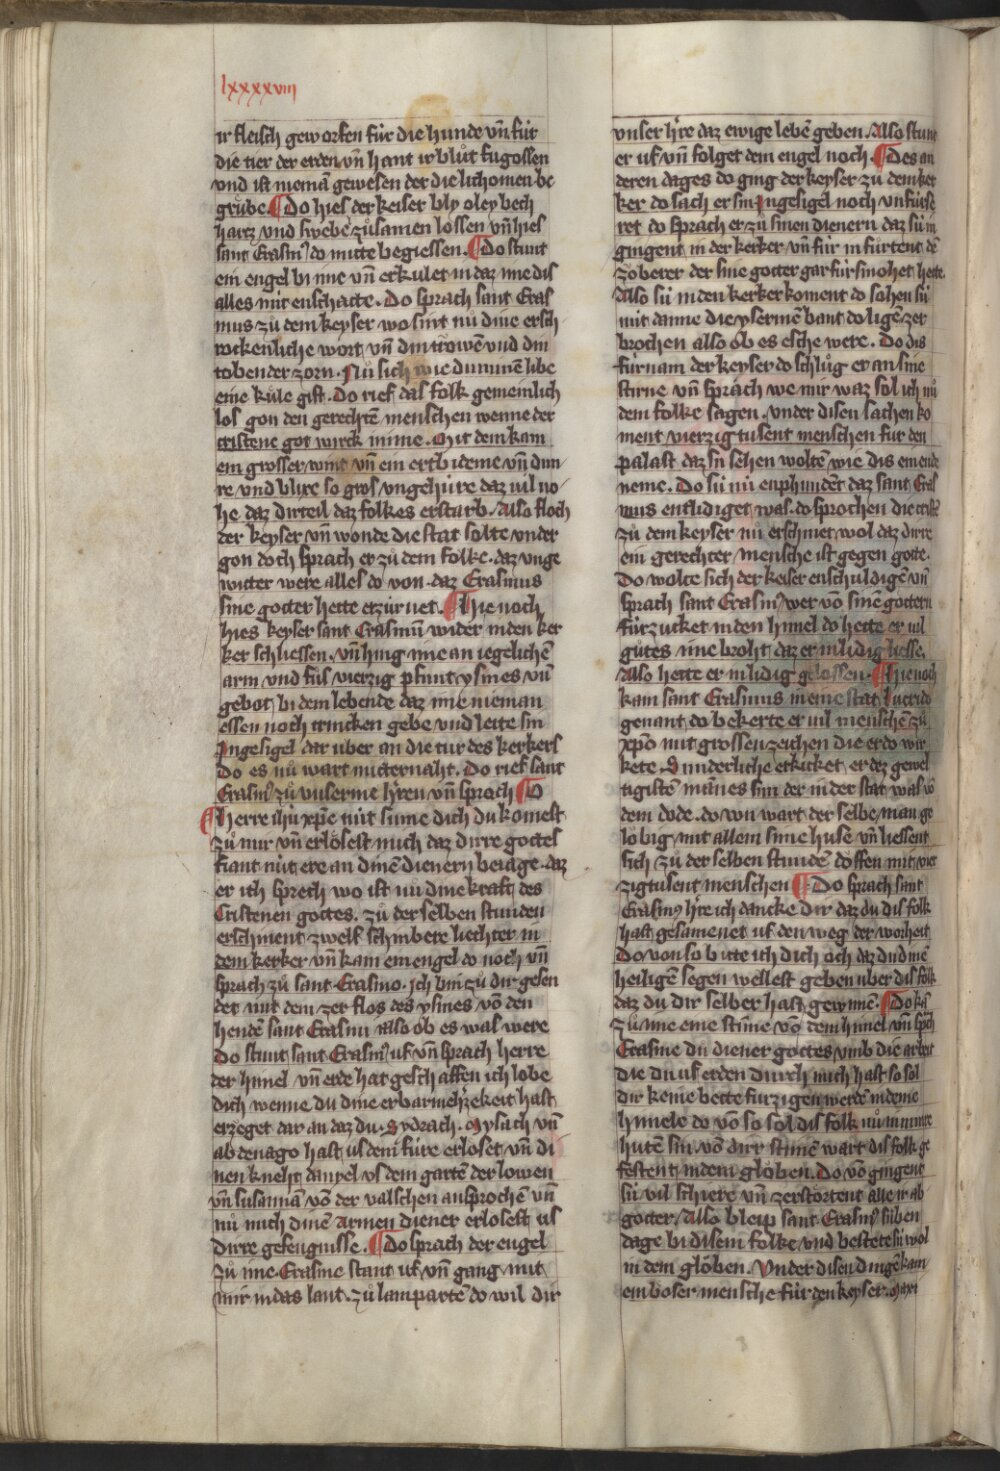 lxxxxviii
ir fleisch geworfen fúr die hunde vn̄ fúr
die tier der erden vn̄ hant ir blůt fugossen
vnd ist niemā gewesen der die lichomen be
grůbe ¶ Do hies der keiser bly oley bech
hartz vnd swebe zůsamen lossen vn̄ hies
sant Erasm᷒ do mitte begiessen. ¶ Do stunt
ein engel bi ime vn̄ erkulet in daz ime dis
alles nút enschatte. Do sprach sant Eras
mus zů dem keyser wo sint nů dine ersch
rockenliche wort vn̄ din trowē vnd din
tobender zorn. Nů sich wie dunumē libe
eine kůle gift. Do rief das folk gemeinlich
los gon den gerechtē menschen wenne der
cristene got wirck inime. Mit dem kam
ein grosser wint vn̄ ein ertbideme vn̄ dun
re vnd blixe so gros vngehúre daz vil no
he daz dirteil daz folkes ersturb. Also floch
der keyser vn̄ wonde die stat solte vnder
gon doch sprach er zů dem folke. daz vnge
witter were alles do von. daz Erasmus
sine gotter hette erzúrnet. ¶ Hie noch
hies keyser sant Erasmū wider in den ker
ker schliessen. vn̄ hing ime an iegelichē
arm vnd fůs vierzig pfunt ysines vn̄
gebot bi dem lebende daz ime nieman
essen noch trincken gebe vnd leite sin
Ingesigel dar uber an die túr des kerkers
Do es nů wart mitternaht. Do rief sant
Erasm᷒ zů vnserme h̄ren vn̄ sprach ¶ O
¶ herre ih̄u xp̄e nút sume dich du komest
zů mir vn̄ erlôsest mich daz dirre gottes
fiant nút ere an dinē dienern beiage. daz
er ich sprech wo ist nů dine kraft des
Cristenen gottes. zů der selben stunden
erschinent zwelf schinbere liechter in
dem kerker vn̄ kam ein engel do noch vn̄
sprach zů sant Erasmo. ich bin zů dir gesen
det mit dem zerflos des ysines vō den
hendē sant Erasmi also ob es was were
Do stunt sant Erasm᷒ uf vn̄ sprach herre
der himel vn̄ erde hat geschaffen ich lobe
dich wenne du dine erbarmeh̄zekeit hast
erzeget dar an daz du. Sydrach. Mysach vn̄
abdenago hast us dem fúre erlôset vn̄ di
nen kneht danyel vs dem gartē der lowen
vn̄ susannā vō der valschen ansprochē vn̄
nů mich dinē armen diener erlosest us
dirre gefengnisse. ¶ Do sprach der engel
zů ime. Erasme stant uf vn̄ gang mit
mir in das lant. zů lampartē do wil dir
vnser h̄re daz ewige lebē geben. Also stunt
er uf vn̄ folget dem engel noch. ¶ Des an
deren dages do ging der keyser zů dem ker
ker do sach er sin Ingesigel noch vnfúrse
ret do sprach er zů sinen dienern daz sú in
gingent in der kerker vn̄ fúr in fúrtent dē
zoberer der sine gotter gar fúrsmohet hette.
Also sú in den kerker koment do sohen sú
nút danne die yserinē bant do ligē zer
brochen also ob es esche were. Do dis
fúrnam der keyser do schlůg er an sine
stirne vn̄ sprach we mir waz sol ich nů
dem folke sagen. vnder disen sachen ko
ment vierzig tusent menschen fúr den
palast daz sú sehen woltē wie dis ein ende
neme. Do sú nů enphundēt daz sant Eras
mus entlidiget was. do sprochen die
zů dem keyser nů erschinet wol daz dirre
ein gerechter mensche ist gegen gotte.
Do wolte sich der keiser enschuldigē vn̄
sprach sant Erasm᷒ wer vō sinē gottern
fúrzucket in den himel do hette er vil
gůtes ime broht daz er in lidig liesse.
Also hette er in lidig gelossen. ¶ Hie noch
kam sant Erasmus in eine stat lucrido
genant do bekerte er vil menschē zů
xp̄o mit grossen zeichen die er do wir
kete. Sunderliche erkicket er dez gewel
tigistē mānes sun der in der stat was vō
dem dode. do von wart der selbe man ge
lôbig mit allem sime huse vn̄ liessent
sich zů der selben stundē dôffen mit vier
zigtusent menschen ¶ Do sprach sant
Erasm᷒ h̄re ich dancke dir daz du dis folk
hast gesamenet uf den weg der worheit
Do von so bitte ich dich och daz du dinē
heiligē segen wellest geben uber dis folk
daz du dir selber hast gewinnē. ¶ Do kā
zů ime eine stime vō dem himel vn̄ sp̄ch
Erasme du diener gottes vmb die arbeit
die du uf erden durch mich hast so sol
dir keine bette fúrzigen werdē in deme
himele do vō so sol dis folk nů in mine
hutē sin vō dirr stimē wart dis folk ge
festent in dem glôben. Do vō gingent
sú vil schiere vn̄ zerstôrtent alle ir ab
gotter. Also bleip sant Erasm᷒ siben
dage bi disem folke vnd bestete sú wol
in dem glôben. Vnder disen dingē kam
ein boser mensche fúr den keyser. Maxi